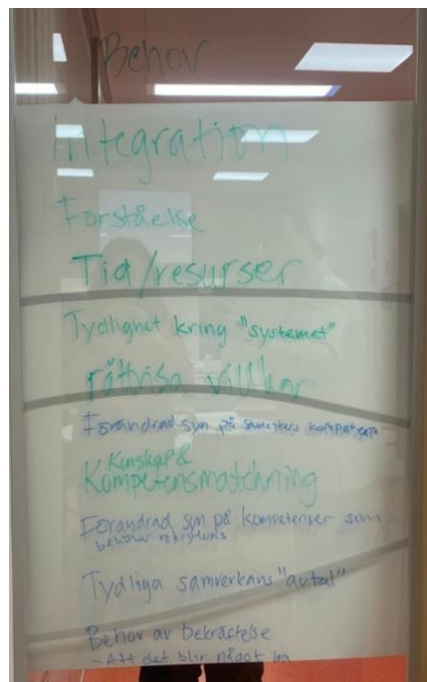 Behov
integration
Förståelse
Tid/resurser
Tydlighet kring "systemet"
rättvisa villkor
Förändrad syn på kompetens
Kunskap &
Kompetensmatchning
Förändrad syn på kompetenser som
behöver rekryteras
Tydliga samverkans "avtal"
Behov av bekräftelse
- Att det blir något